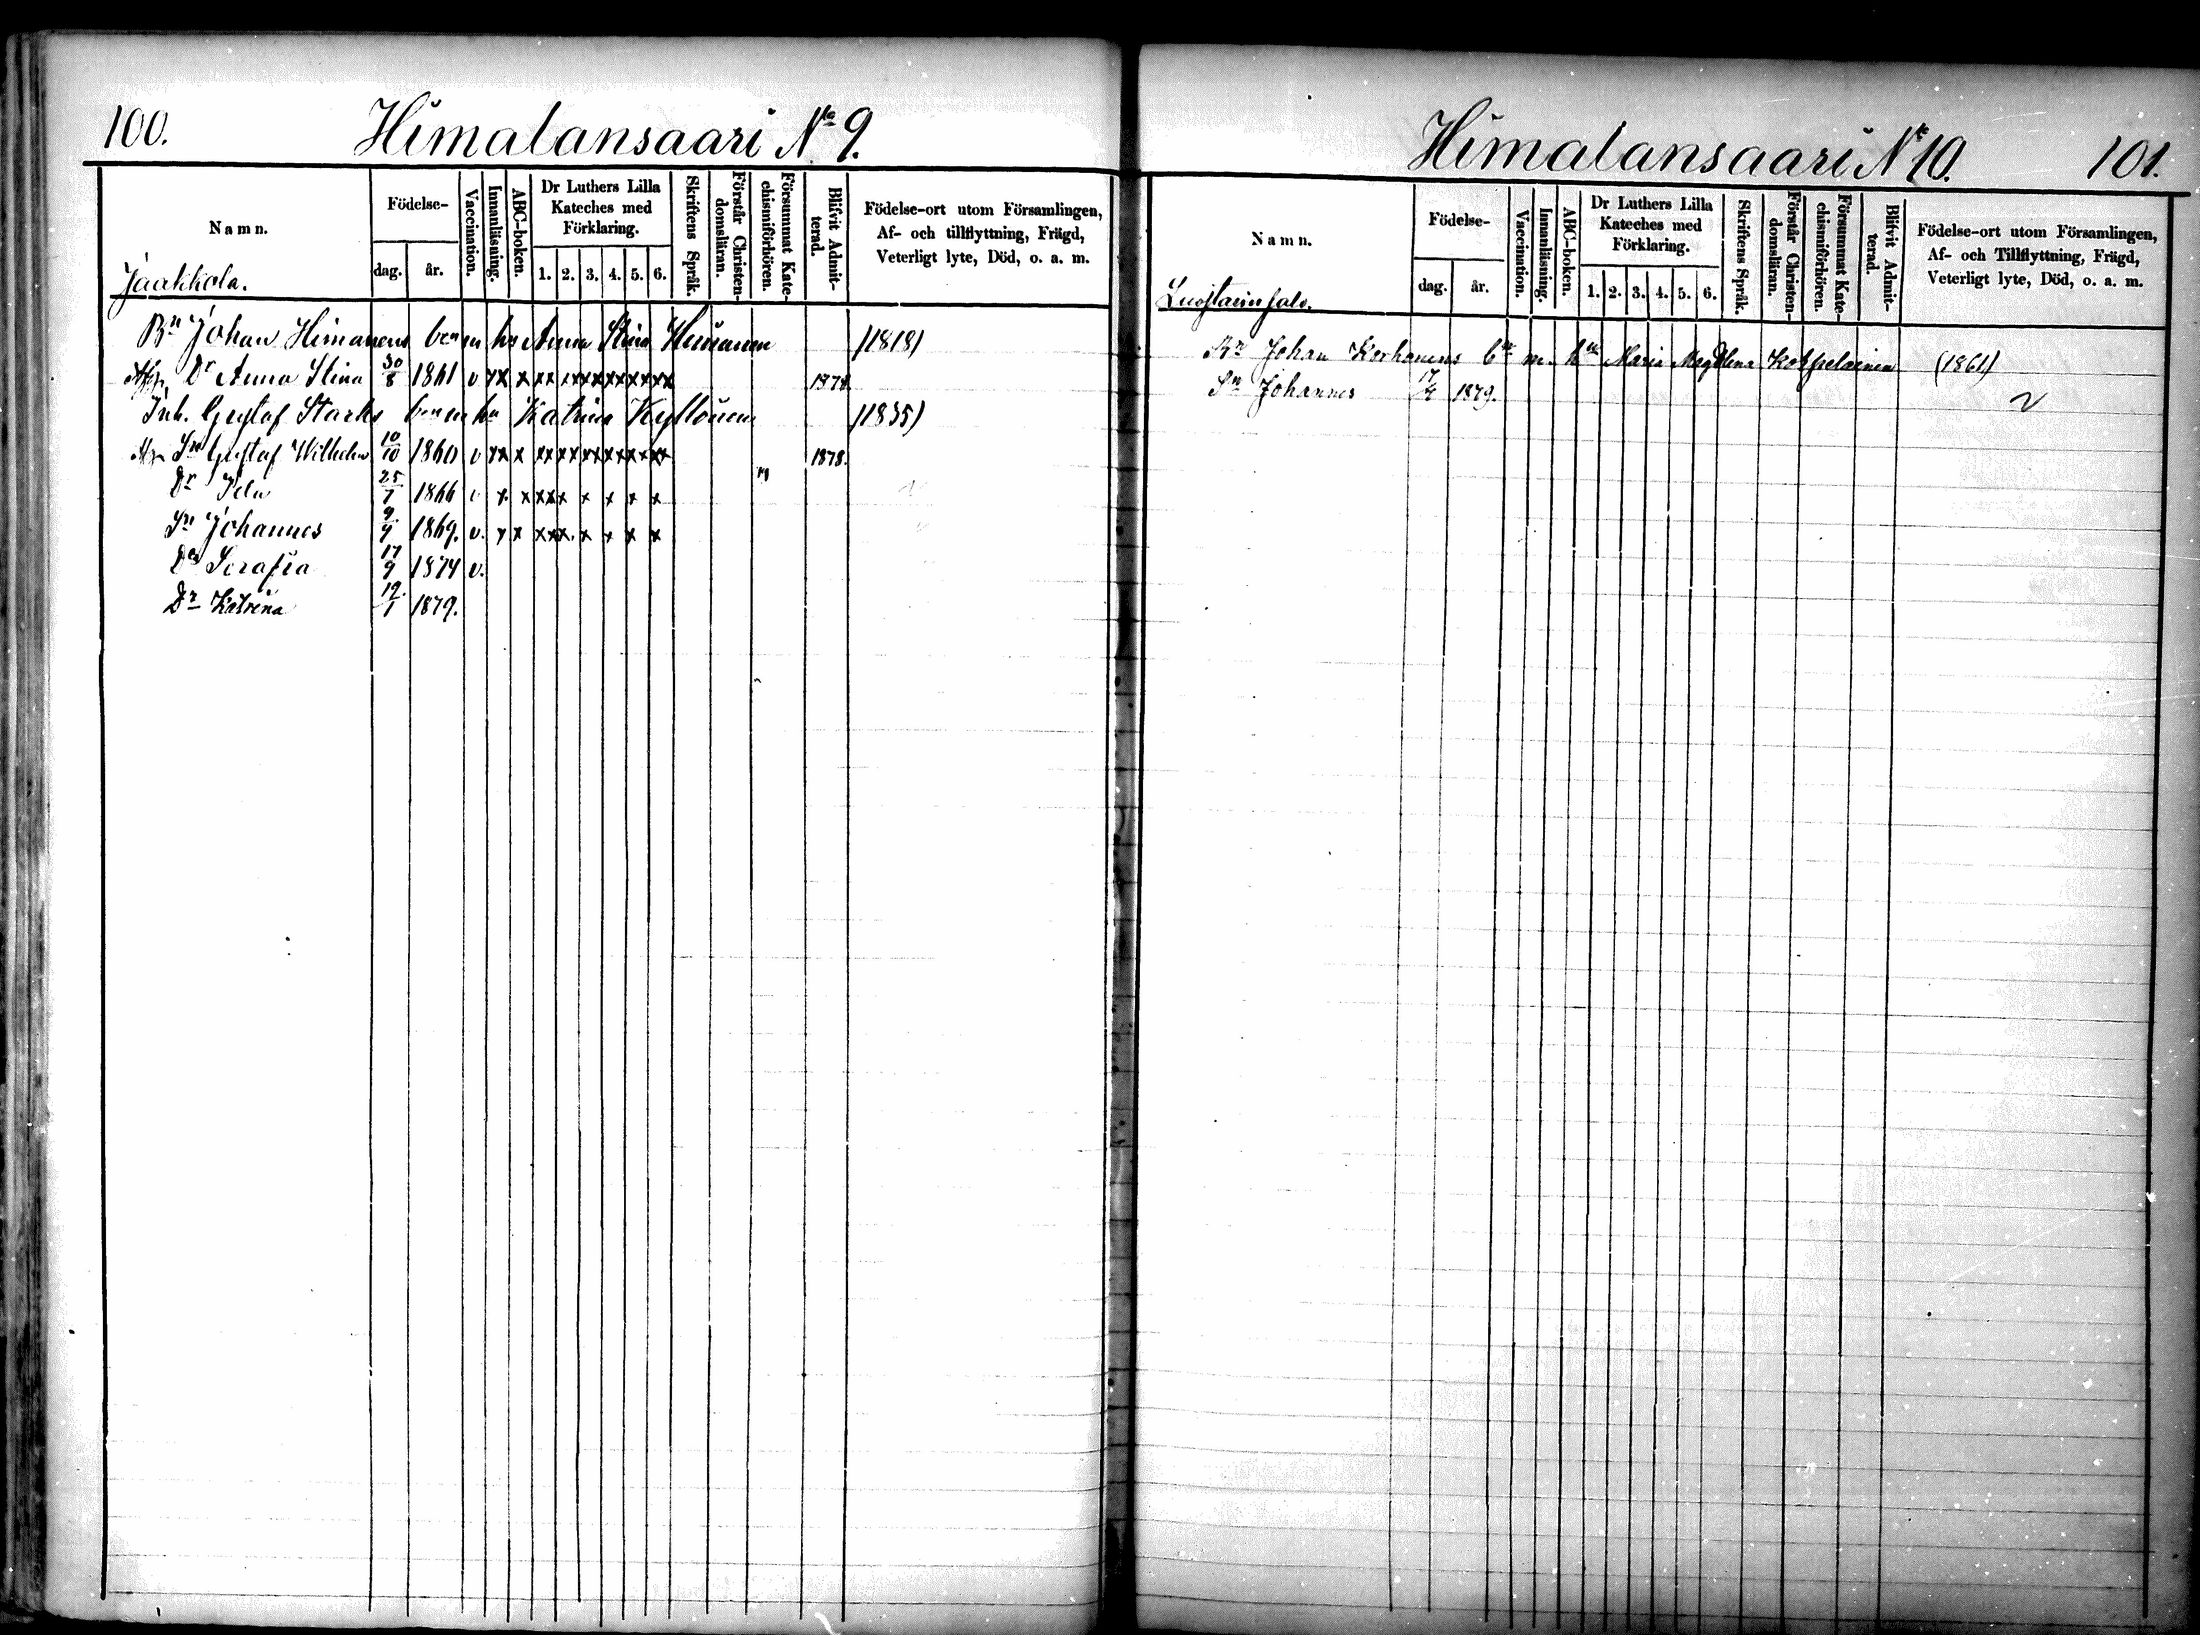 100. Himalansaari No 9.
Namn. Födelse- dag. år. Vaccination. Innanläsning. ABC-boken. Dr Luthers Lilla Kateches med Förklaring. 1. 2. 3. 4. 5. 6. Skriftens Språk. Förstår Christendomsläran. Försummat Katechismiförhören. Blifvit Admitterad. Födelse-ort utom Församlingen, Af- och tillflyttning, Frägd, Veterligt lyte, Död, o. a. m.
Jaakkola.
Bn Johan Himanens ben m hu Anna Stina Himanen (1818)
Dr Anna Stina 30/8 1861 v xx x xx xx xx xx xx xx 1878
Inh. Gustaf Starks ben m hu Katrina Kyllönen (1835)
Sn Gustaf Wilhelm 10/10 1860 v xx x xx xx xx xx xx xx 1878.
Dr Ida 25/7 1866 v x x xxx x x x x
Sn Johannes 9/4 1869. v. x x xx x. x x x x
Dr Serafia 17/9 1874 v.
Dr Katrina 12/1 1879.
Himalansaari No 10. 101.
Namn. Födelse- dag. år. Vaccination. Innanläsning. ABC-boken. Dr Luthers Lilla Kateches med Förklaring. 1. 2. 3. 4. 5. 6. Skriftens Språk. Förstår Christendomsläran. Försummat Katechismiförhören. Blifvit Admitterad. Födelse-ort utom Församlingen, Af- och Tillflyttning, Frägd, Veterligt lyte, Död, o. a. m.
Bn Johan Korhonens bn m. hu Maria Magdlena Korpelainen (1861)
Sn Johannes 17/4 1879.